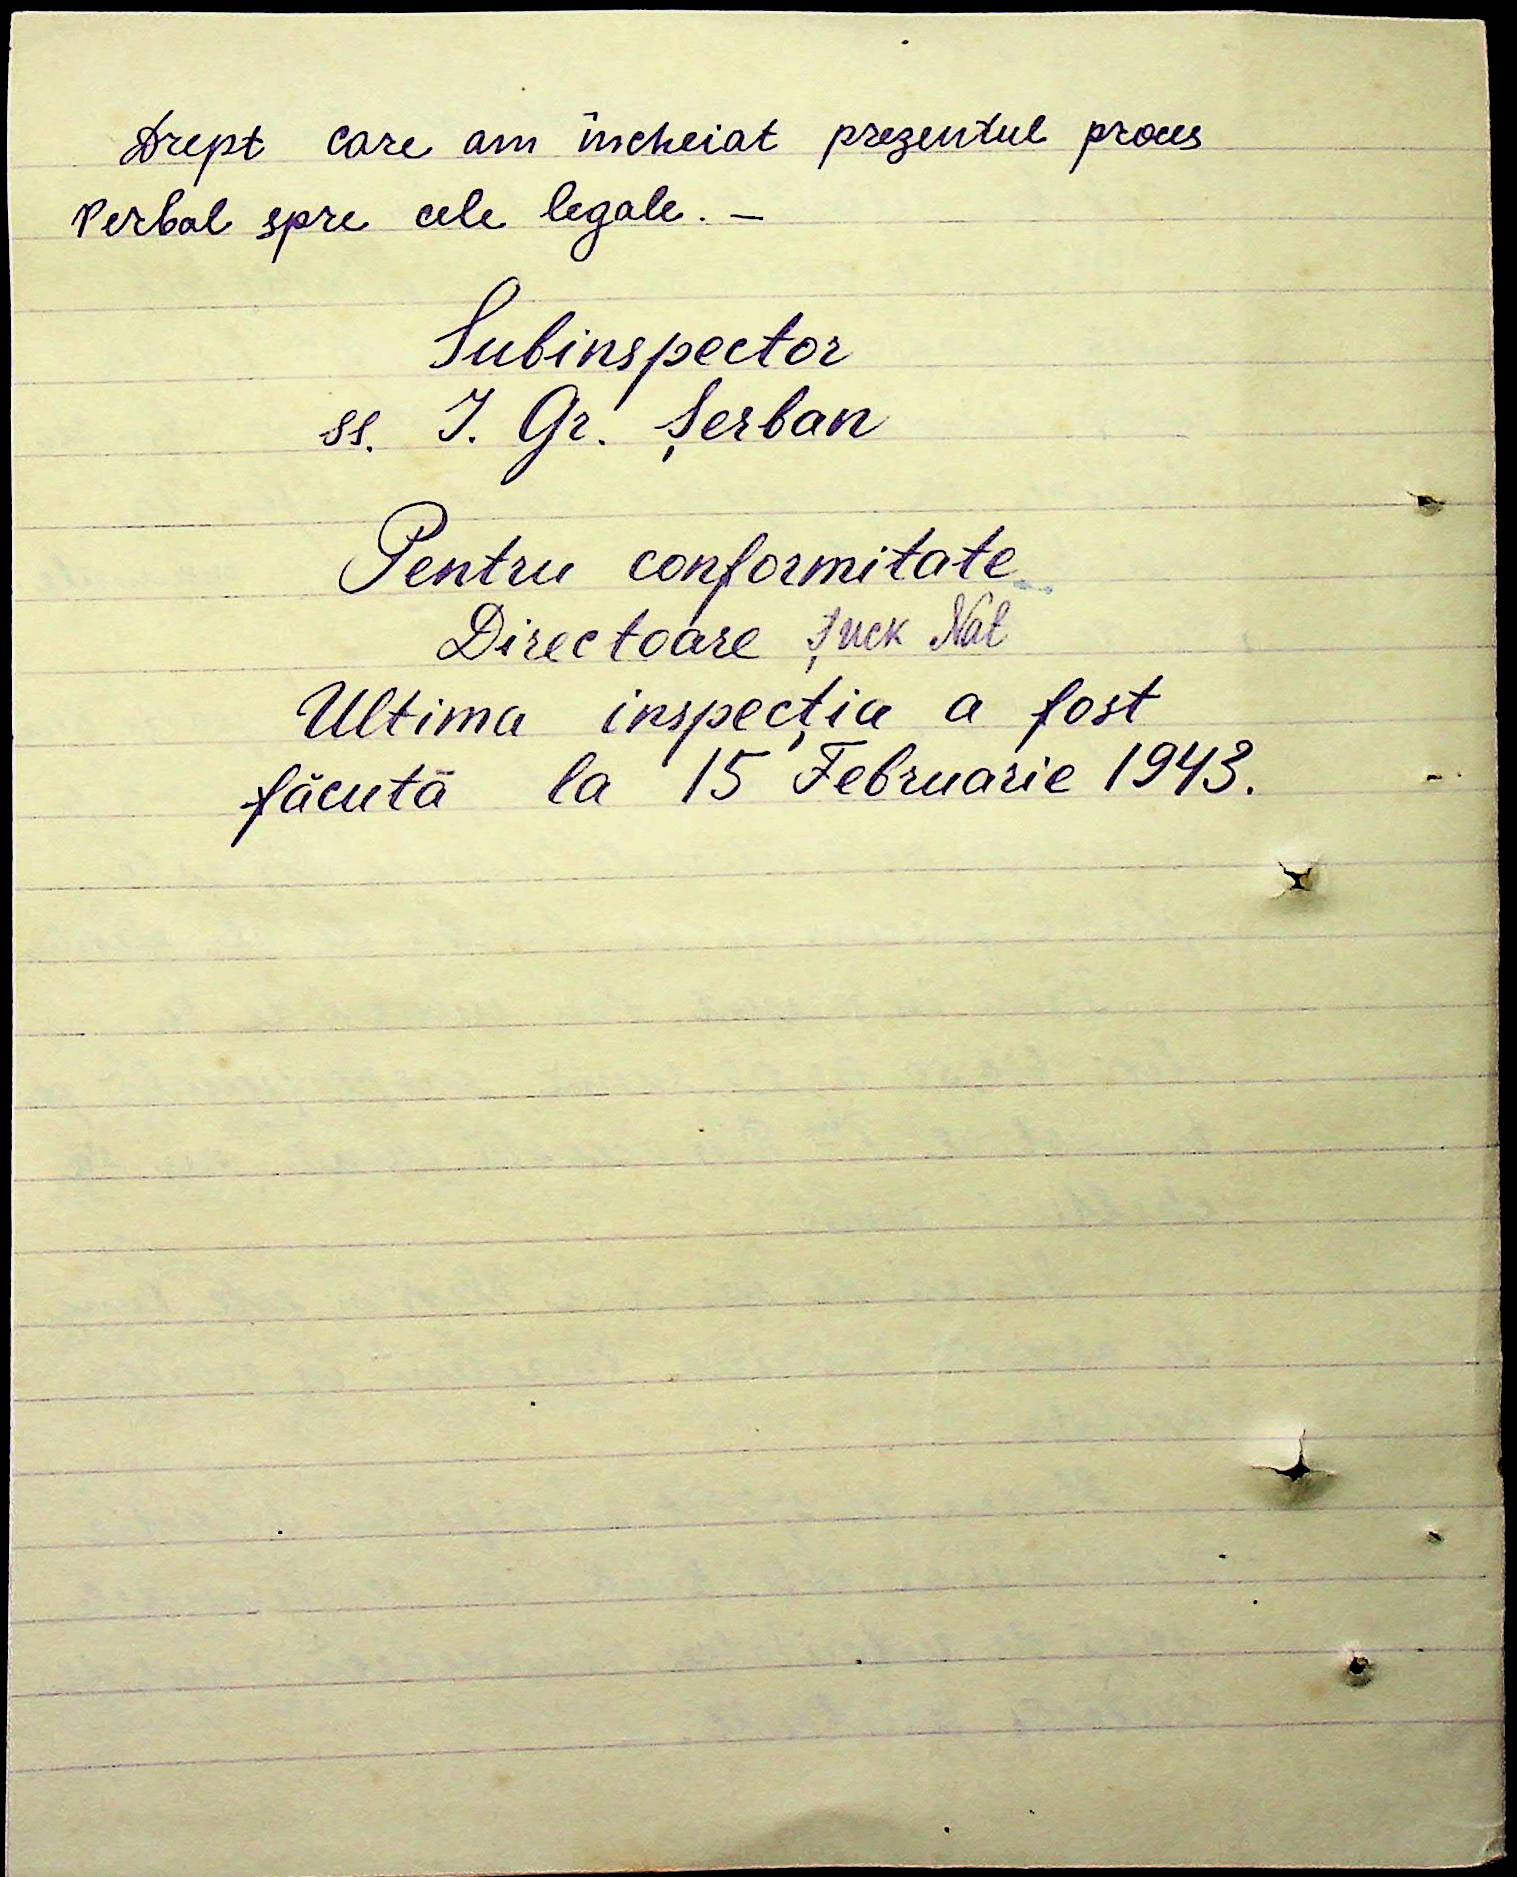 Drept care am încheiat prezentul proces
Verbal spre cele legale. —
Subinspector
ss. I. Gr. Șerban
Pentru conformitate
Directoare
Ultima inspecția a fost
făcută la 15 Februarie 1943.